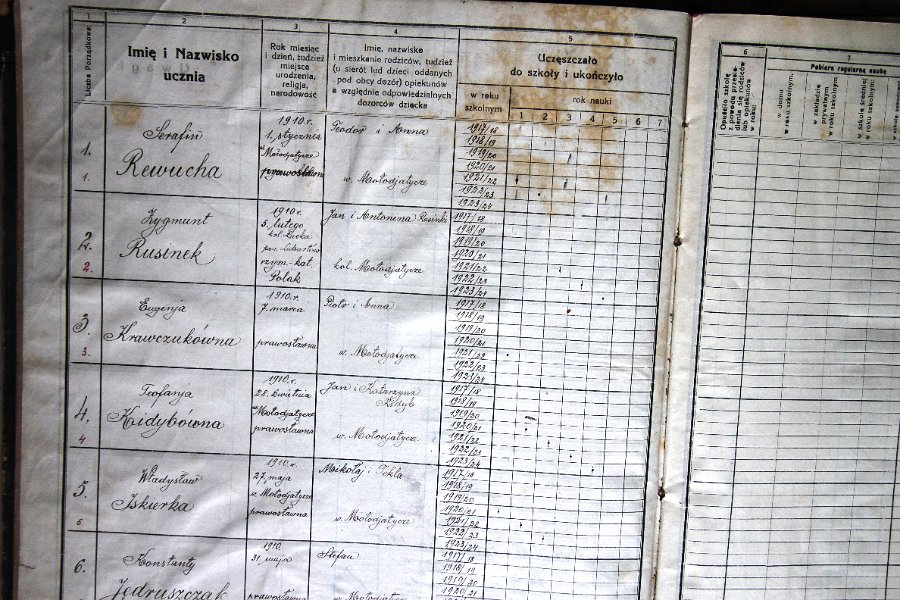 1
2
3
4
5
Liczba Porządkowa
Imię i Nazwisko
ucznia
Rok miesiąc
i dzień, tudzież
miejsce
urodzenia,
religja,
narodowość
Imię, nazwisko
i mieszkanie rodziców, tudzież
(u sierót lud dzieci oddanych
pod obcy dozór) opiekunów
a względnie odpowiedzialnych
dozorców dziecka
Uczęszczało
do szkoły i ukończyło
w roku
szkolnym
rok nauki
1 2 3 4 5 6 7
6
7
Opuściło szkołę
z powodu przesie-
dlenia się rodziców
lub opiekunów
w roku:
Pobiera regularną naukę
w domu
w roku szkolnym:
w zakładzie
prywatnym
w roku szkolnym:
w szkole średniej
w roku szkolnym:
1.
1.
Serafin
Rewucha
1910 r.
1. stycznia
Mołodjatycze
prawosławna
Teodor i Anna
w. Mołodjatycze
1917/18
1918/19
1919/20
1920/21
1921/22
1922/23
1923/24
2.
2.
Zygmunt
Rusinek
1910 r.
5. lutego
rzym.-kat.
Polak
Jan i Antonina Rusinki
kol. Mołodjatycze
1917/18
1918/19
1919/20
1920/21
1921/22
1922/23
1923/24
3.
3.
Eugenja
Krawczukówna
1910 r.
7. marca
prawosławna
Piotr i Anna
w. Mołodjatycze
1917/18
1918/19
1919/20
1920/21
1921/22
1922/23
1923/24
4.
4
Teofanja
Kidybówna
1910 r.
28. kwietnia
Mołodjatycze
prawosławna
Jan i Katarzyna
w. Mołodjatycze
1917/18
1918/19
1919/20
1920/21
1921/22
1922/23
1923/24
5.
5
Władysław
Iskierka
1910 r.
27. maja
w. Mołodjatycze
prawosławna
Mikołaj i Tekla
w. Mołodjatycze
1917/18
1918/19
1919/20
1920/21
1921/22
1922/23
1923/24
6.
Konstanty
Jędruszczak
1910
31. maja
prawosławna
Stefan
w. Mołodjatycze
1917/18
1918/19
1919/20
1920/21